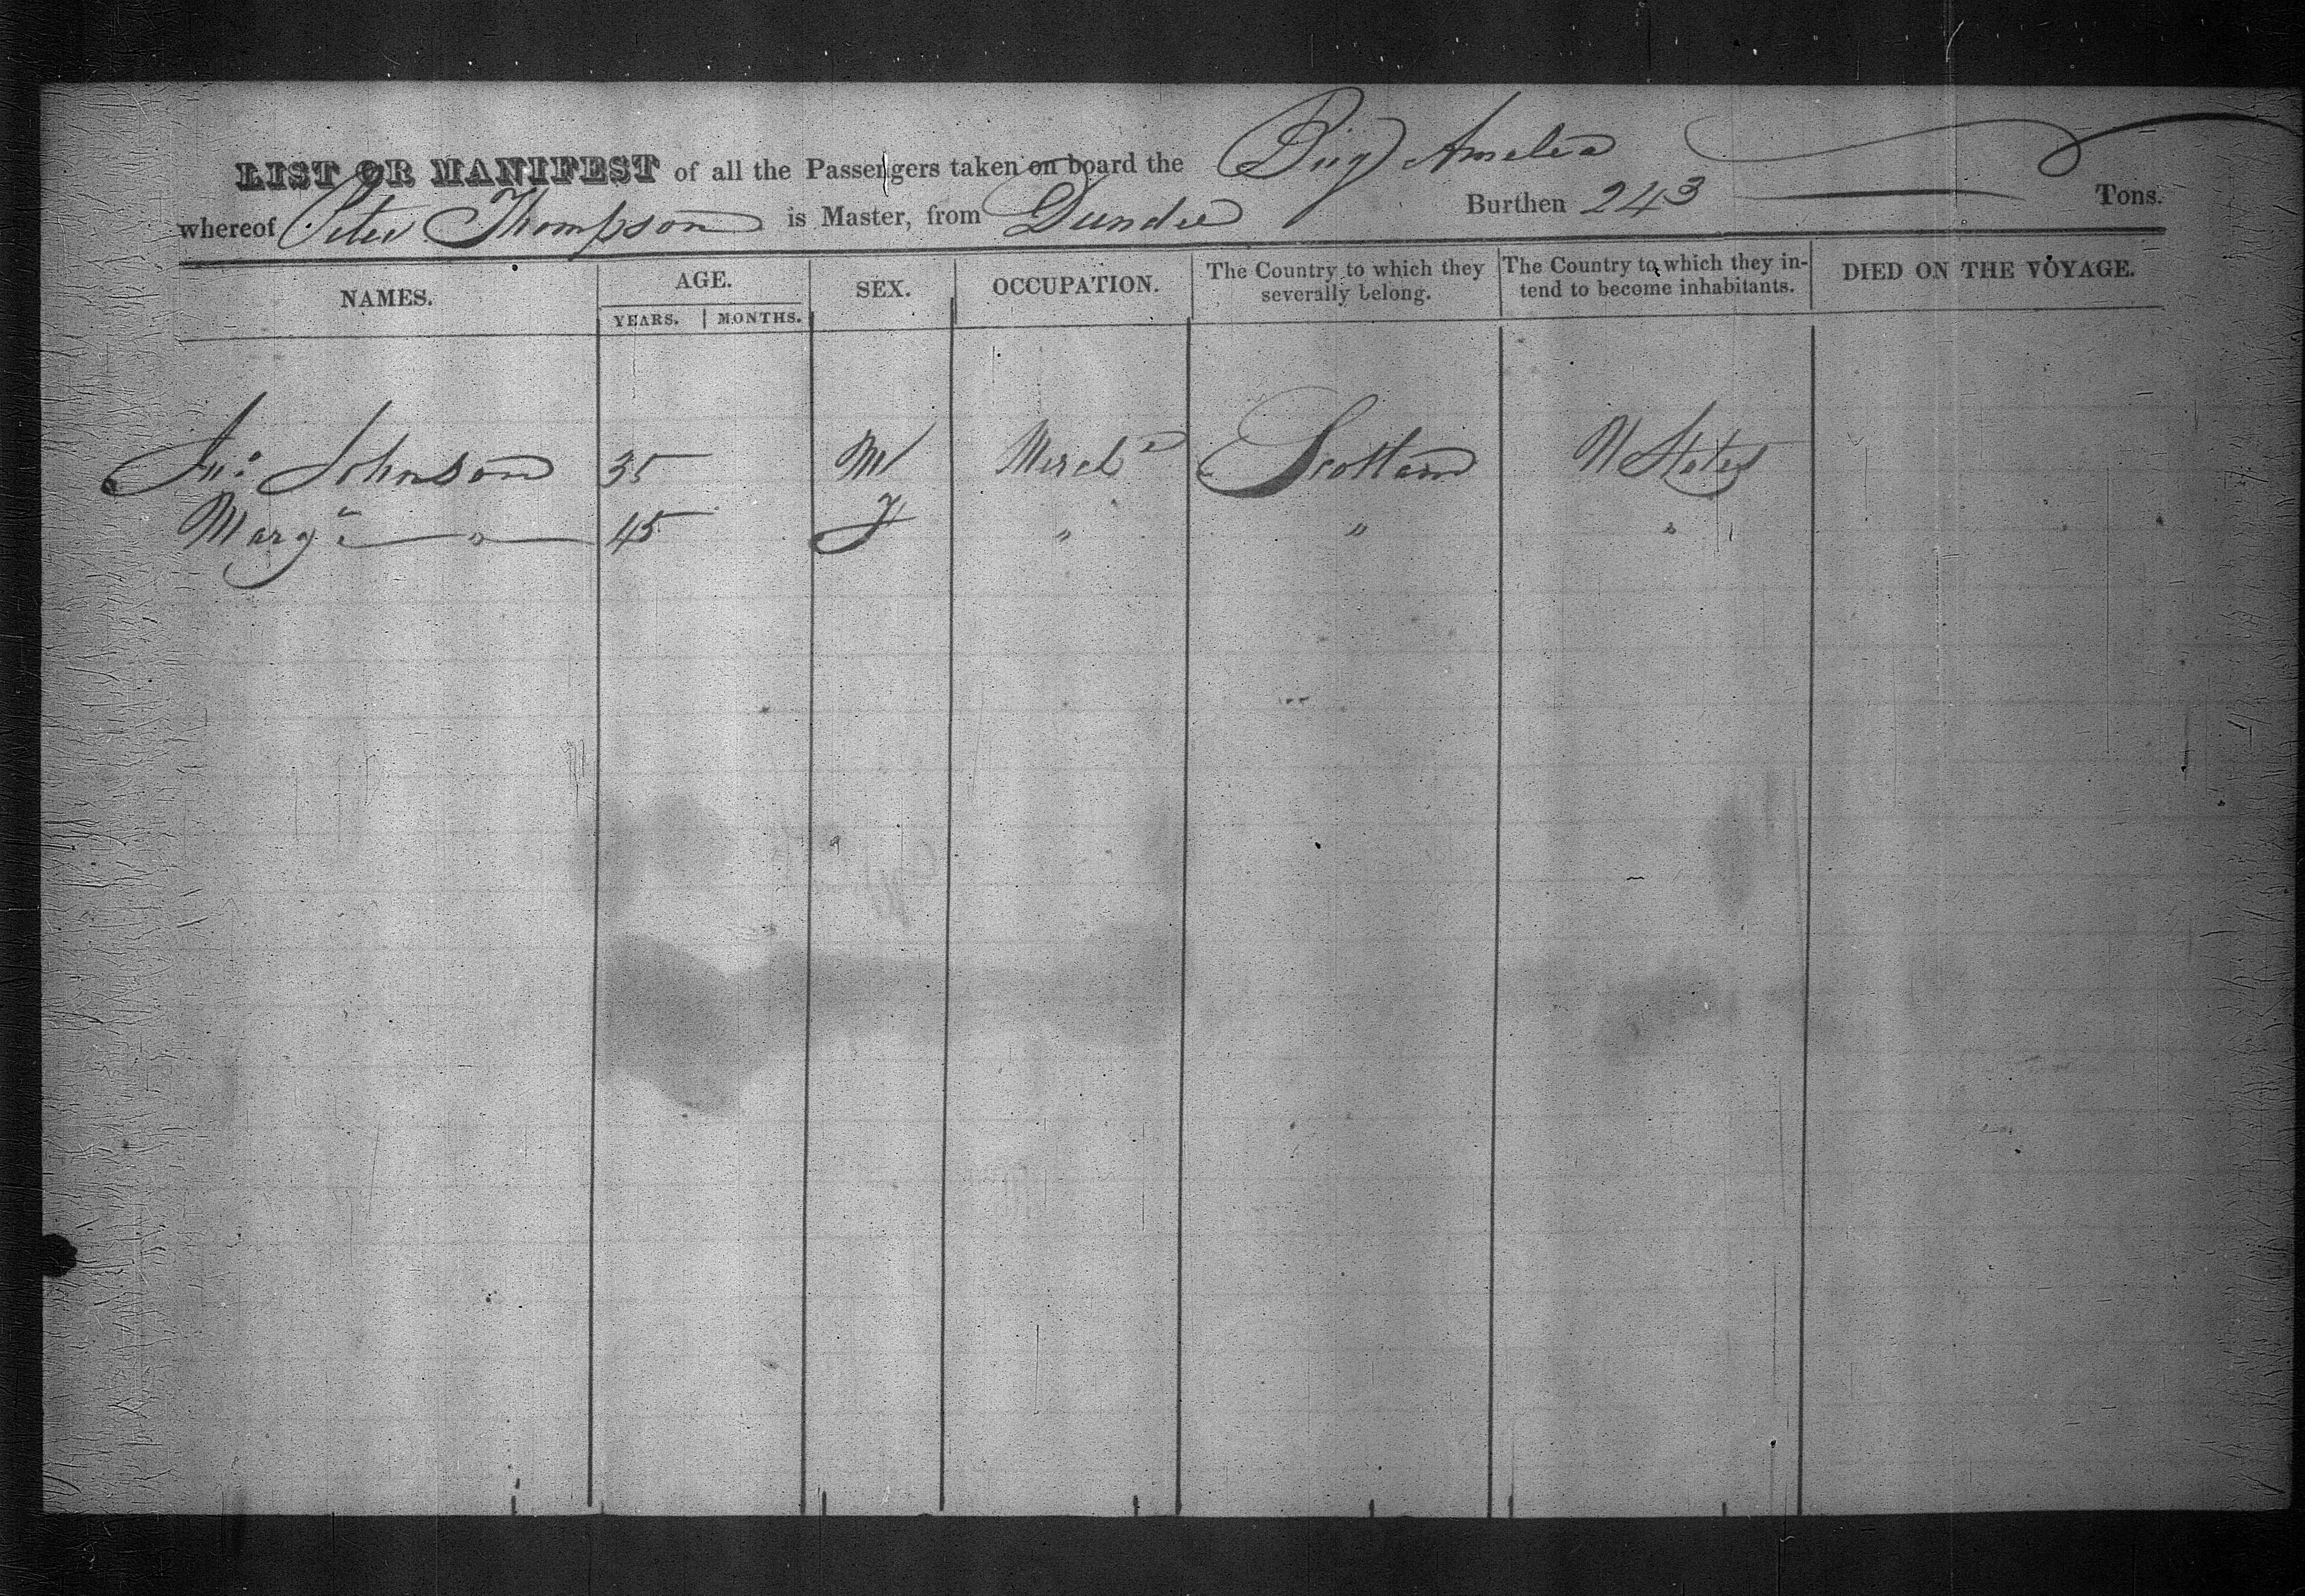 LIST OR MANIFEST of all the Passengers taken on board the Brig Amelia
whereof Peter Thompson is Master, from Dundee Burthen 243 Tons.
NAMES. AGE. SEX. OCCUPATION. The Country to which they severally belong. The Country to which they intend to become inhabitants. DIED ON THE VOYAGE.
YEARS. MONTHS.
Jno. Johnson 35 M Scotland U States
Margt " 45 F " " "